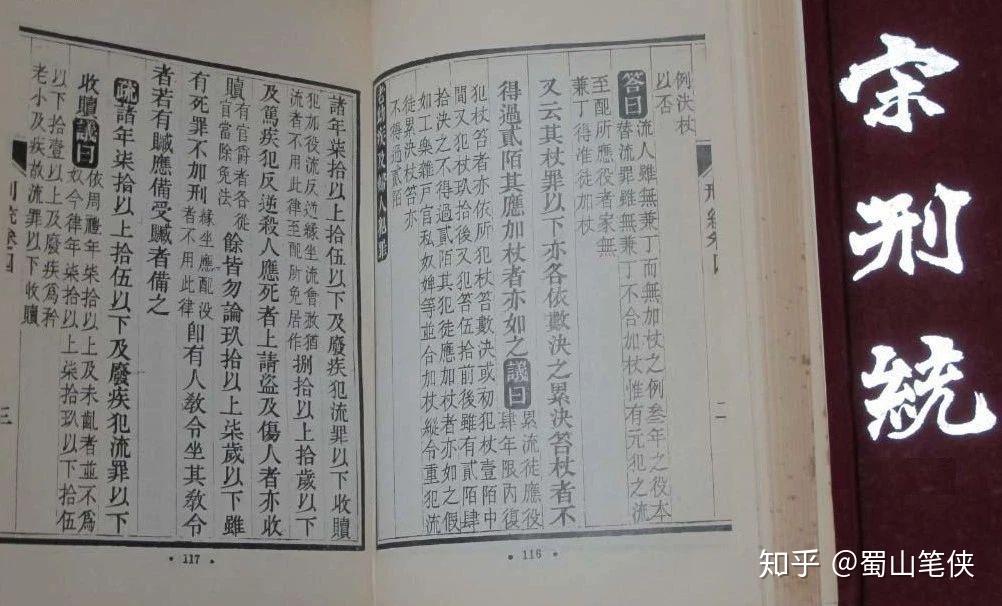 宋刑統
例決杖
以否
答曰流人雖無兼丁而無加杖之例叁年之役本
替流罪雖無兼丁不合加杖惟有元犯之流
至配所應役者家無
兼丁得准徒加杖
又云其杖罪以下亦各依數決之累決笞杖者不
得過貳陌其應加杖者亦如之議曰累流徒應役
肆年限內復
犯杖笞者亦依所犯杖笞數決或初犯杖壹陌中
間又犯杖玖拾後又犯笞伍拾前後雖有貳陌肆
拾決之不得過貳陌其犯徒應加杖者亦如之假
如工樂雜戶官私奴婢等並合加杖縱令重犯流
徒累決杖笞亦
不得過貳陌
老幼疾及婦人犯罪
二
• 116 •
諸年柒拾以上拾伍以下及廢疾犯流罪以下收贖
犯加役流反逆緣坐流會赦猶
流者不用此律至配所免居作
捌拾以上拾歲以下
及篤疾犯反逆殺人應死者上請盜及傷人者亦收
贖
有官爵者各從
官當除免法
餘皆勿論玖拾以上柒歲以下雖
有死罪不加刑
緣坐應配沒
者不用此律
即有人教令坐其教令
者若有贓應備受贓者備之
疏諸年柒拾以上拾伍以下及廢疾犯流罪以下
收贖議曰
依周禮年柒拾以上及未齓者並不為
奴今律年柒拾以上柒拾玖以下拾伍
以下拾壹以上及廢疾為矜
老小及疾故流罪以下收贖
刑統卷四
三
• 117 •
知乎 @蜀山笔侠